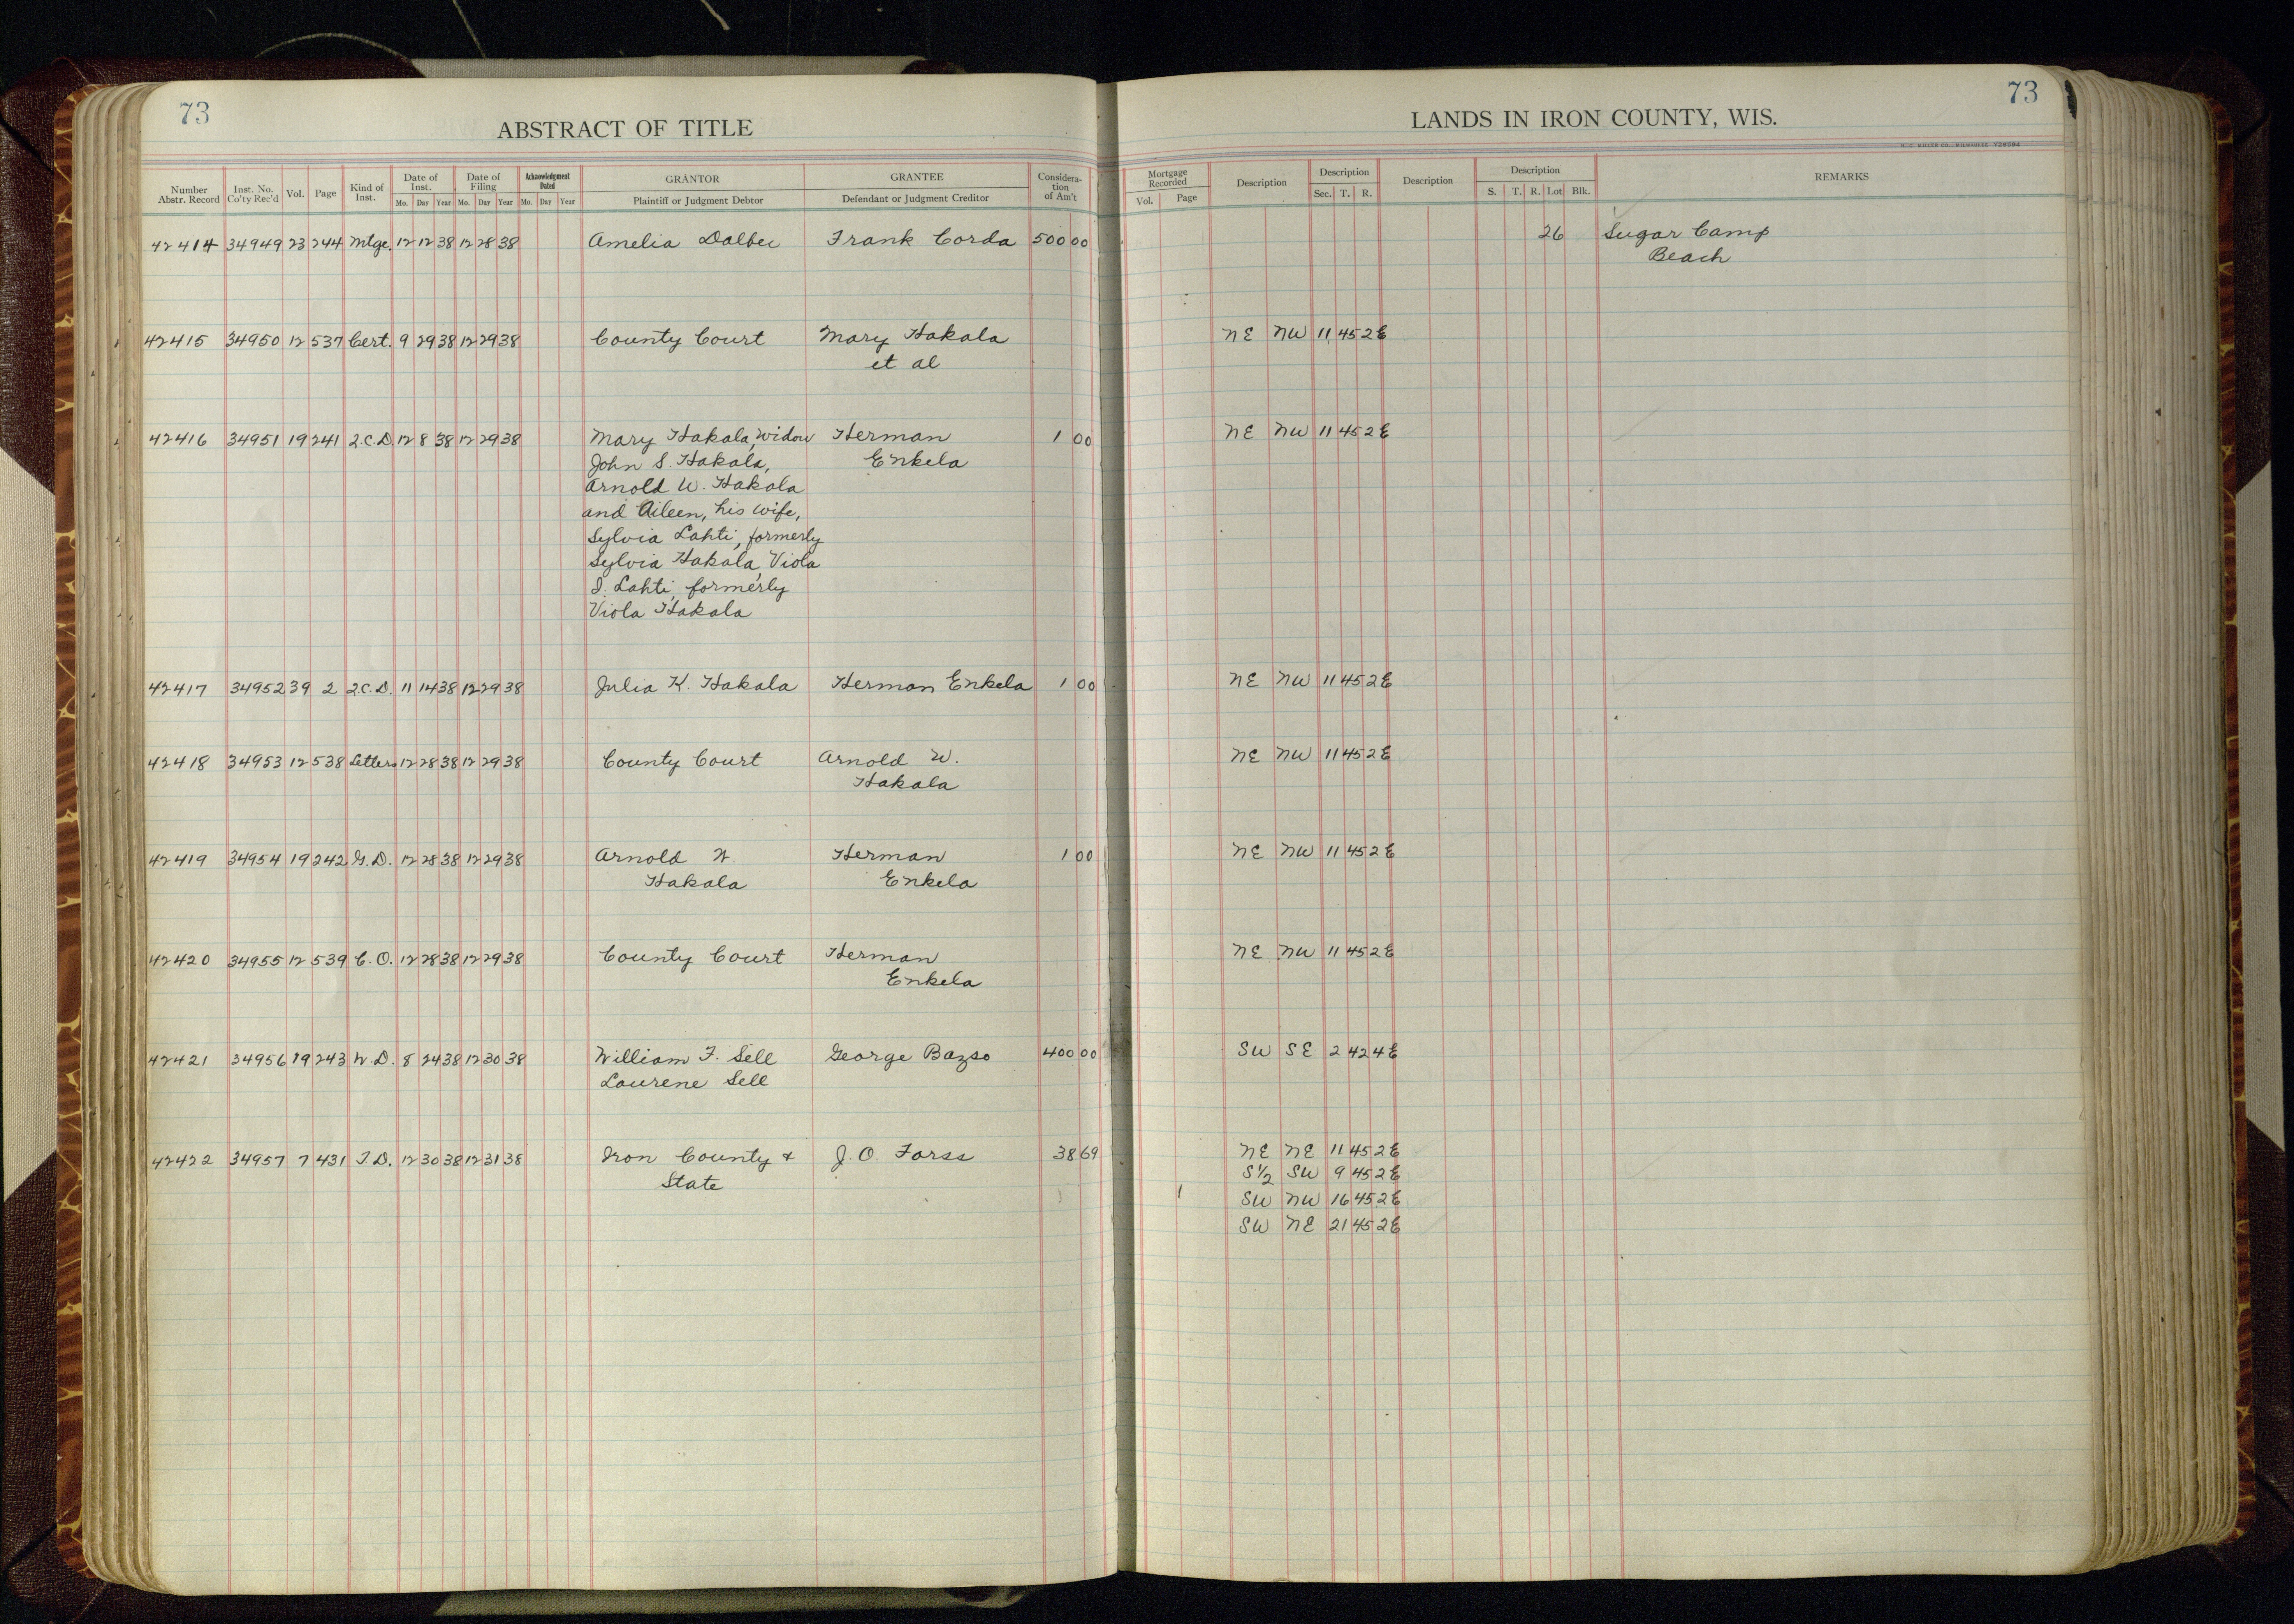 73
ABSTRACT OF TITLE
Number Abstr. Record | Inst. No. Co'ty Rec'd | Vol. | Page | Kind of Inst. | Date of Inst. Mo. Day Year | Date of Filing Mo. Day Year | Acknowledgment Dated Mo. Day Year | GRANTOR Plaintiff or Judgment Debtor | GRANTEE Defendant or Judgment Creditor | Considera-tion of Am't
42414 34949 23 244 Mtge. 12 12 38 12 28 38 Amelia Dalbec Frank Corda 500 00
42415 34950 12 537 Cert. 9 29 38 12 29 38 County Court Mary Hakala
et al
42416 34951 19 241 2.C.D. 12 8 38 12 29 38 Mary Hakala, widow Herman 1 00
John S. Hakala, Enkela
Arnold W. Hakala
and Aileen, his wife,
Sylvia Lahti, formerly
Sylvia Hakala, Viola
I. Lahti, formerly
Viola Hakala
42417 34952 39 2 2.C.D. 11 14 38 12 29 38 Julia K. Hakala Herman Enkela 1 00
42418 34953 12 538 Letters 12 28 38 12 29 38 County Court Arnold W.
Hakala
42419 34954 19 242 G.D. 12 28 38 12 29 38 Arnold W. Herman 1 00
Hakala Enkela
42420 34955 12 539 C.O. 12 28 38 12 29 38 County Court Herman
Enkela
42421 34956 19 243 W.D. 8 24 38 12 30 38 William F. Sell George Bazso 400 00
Laurene Sell
42422 34957 7 431 T.D. 12 30 38 12 31 38 Iron County & J. O. Forss 38 69
State
73
LANDS IN IRON COUNTY, WIS.
Mortgage Recorded Vol. Page | Description | Description Sec. T. R. | Description | Description S. T. R. Lot Blk. | REMARKS
26 Sugar Camp
Beach
NE NW 11 45 2E
NE NW 11 45 2E
NE NW 11 45 2E
NE NW 11 45 2E
NE NW 11 45 2E
NE NW 11 45 2E
SW SE 2 42 4E
NE NE 11 45 2E
S½ SW 9 45 2E
SW NW 16 45 2E
SW NE 21 45 2E